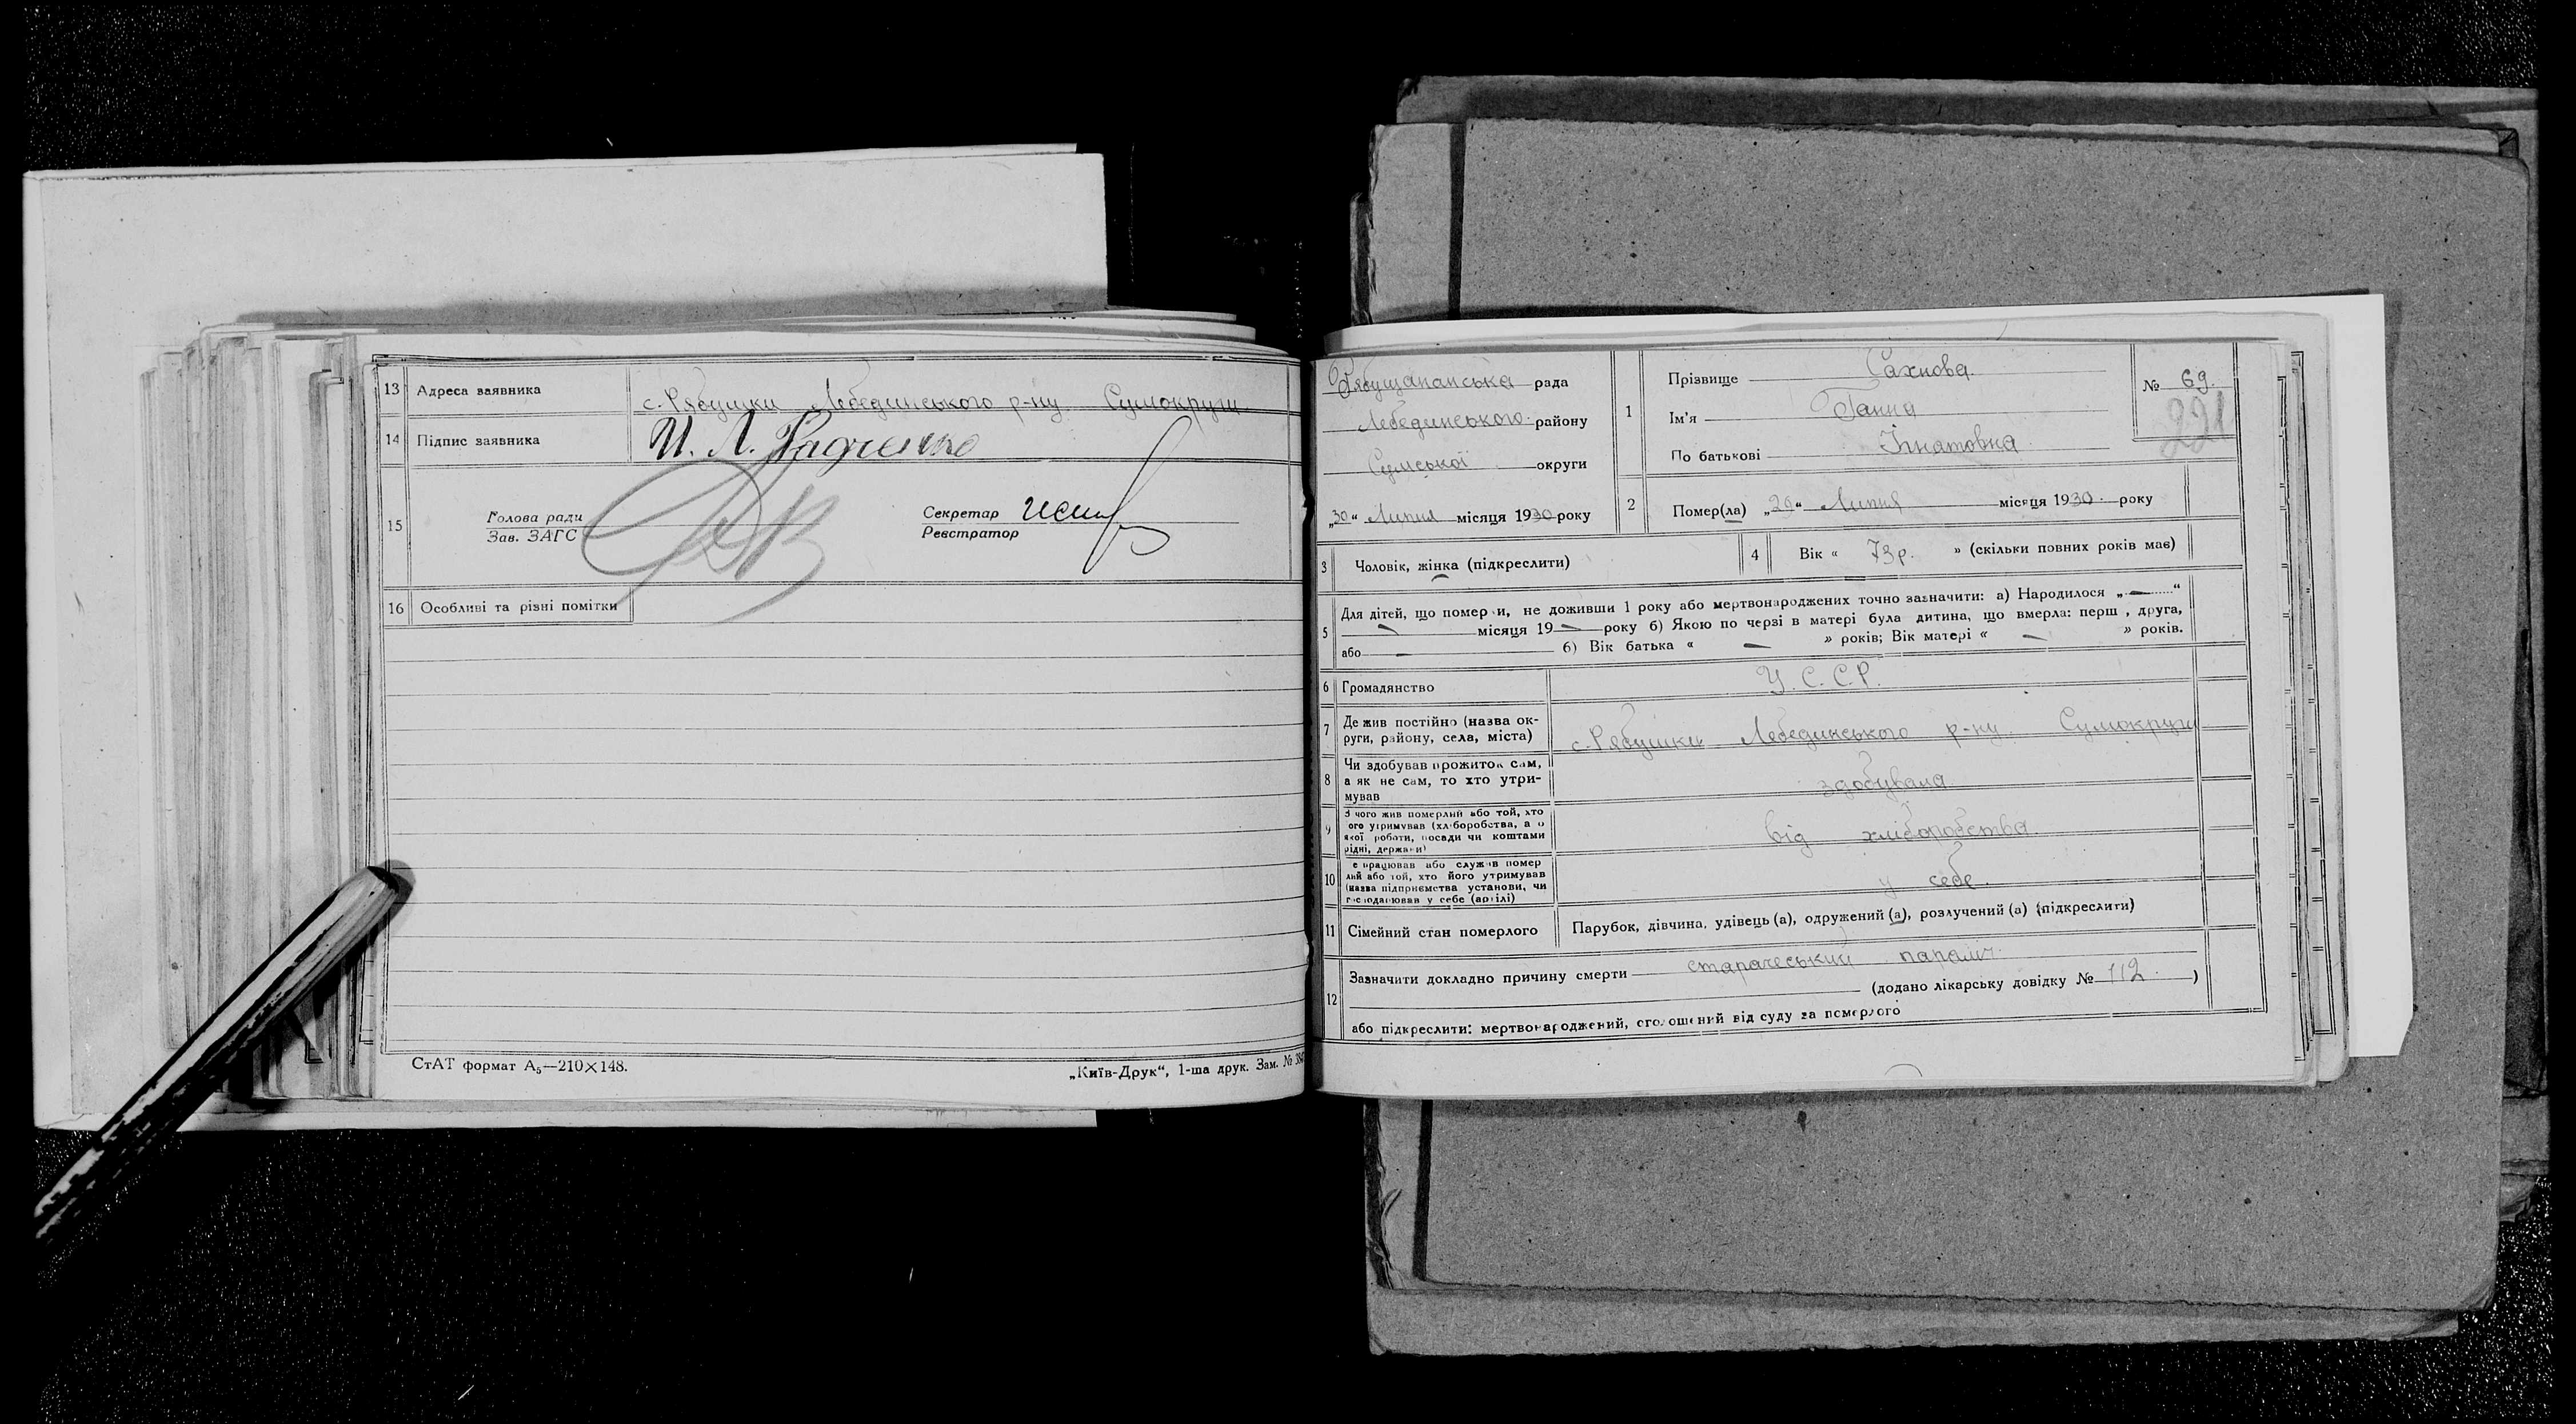 13 Адреса заявника с. Рябушки Лебединського р-ну Сумокруги
14 Підпис заявника И. Л. Радченко
15 Голова ради
Зав. ЗАГС
Секретар
Реєстратор
16 Особливі та різні помітки
СтАТ формат А₅—210×148.
„Київ-Друк“, 1-ша друк. Зам. №
рада
Лебединського району
Сумської округи
„30“ Липня місяця 1930 року
1 Прізвище Сахнова
Ім'я Ганна
По батькові Ігнатовна
№ 69.
221
2 Помер(ла) „29“ Липня місяця 1930 року
3 Чоловік, жінка (підкреслити)
4 Вік « 73 р. » (скільки повних років має)
5 Для дітей, що померли, не доживши 1 року або мертвонароджених точно зазначити: а) Народилося „—“
— місяця 19— року б) Якою по черзі в матері була дитина, що вмерла: перш , друга,
або — б) Вік батька « — » років; Вік матері « — » років.
6 Громадянство У. С. С. Р.
7 Де жив постійно (назва ок-
руги, району, села, міста) с. Рябушки Лебединського р-ну Сумокруги
8 Чи здобував прожиток сам,
а як не сам, то хто утри-
мував здобувала
9 З чого жив померлий або той, хто
ого утримував (хліборобства, а о
якої роботи, посади чи коштами
рідні, держави) від хліборобства
10 е працював або служив помер
лий або той, хто його утримував
(назва підприємства установи, чи
господарював у себе (артілі) у себе.
11 Сімейний стан померлого Парубок, дівчина, удівець (а), одружений (а), розлучений (а) (підкреслити)
12 Зазначити докладно причину смерти старачеський параліч.
(додано лікарську довідку № 112. )
або підкреслити: мертвонароджений, оголошений від суду за померлого